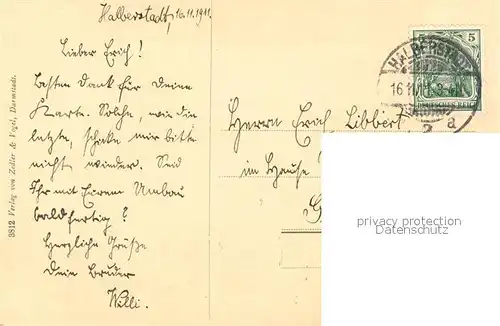 Halberstadt, 16.11.1911.
Lieber Erich!
Besten Dank für Deine
Karte. Solche, wie die
letzte, schicke mir bitte
nicht wieder. Seid
Ihr mit Eurem Umbau
bald fertig?
Herzliche Grüße
Dein Bruder
Willi.
3812 Verlag von Zedler & Vogel, Darmstadt.
5
DEUTSCHES REICH
HALBERSTADT
16.11.11
2 a
Herrn Erich Libbert
im Hause
privacy protection
Datenschutz